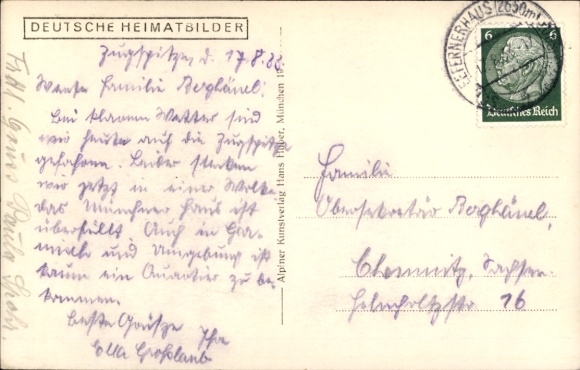 DEUTSCHE HEIMATBILDER
Zugspitze, d. 17.8.33.
Werte Familie Boghänel!
Bei klarem Wetter sind
wir heute auf die Zugspitze
gefahren. Leider stecken
wir jetzt in einer Wolke
das Münchner Haus ist
überfüllt Auch in Gar-
misch und Umgebung ist
kaum ein Quartier zu be-
kommen.
Beste Grüsze Ihre
Ella Großlaub
Frdl Grüße Paula
Alpiner Kunstverlag Hans Huber, München
EETERNERHAUS (2650m)
6 6
Deutsches Reich
Familie
Obersekretär Boghänel,
Chemnitz, Sachsen
Helmholtzstr 16